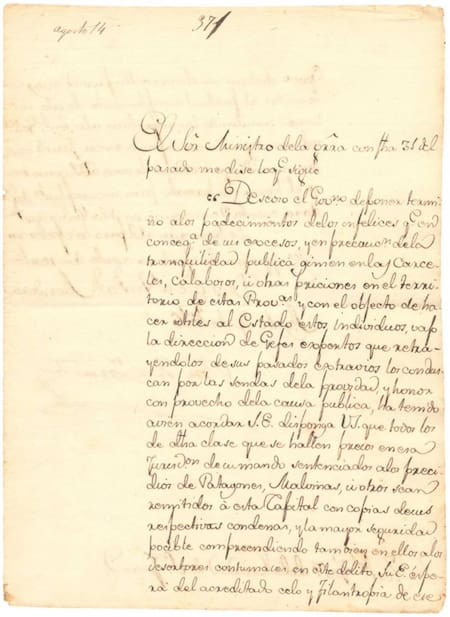 agosto 14
371
El Sôr Ministro dela grâ con fha 31 del
pasado me dise loq.e sigue
"Deseoso el Gov.no deponer termi
no alos padecimientos delos infelices q.e en
conceq.a de sus excesos, y en precau.n dela
tranquilidad publica gimen en las Carce
les, calabosos, ù otras priciones en el terri
torio de estas Prov.as y con el objeto de ha
cer utiles al Estado estos, individuos, vajo
la direccion de Gefes expertos que retra
yendolos de sus pasados extravios los condus
can por las sendas dela providad, y honor
con provecho dela causa publica, ha tenido
avien acordar S.E. disponga VS. que todos los
de dha clase que se hallen presos en esa
Jurisd.on de su mando sentenciados alos preci
dios de Patagones, Malvinas, ù otros sean
remitidos à esta Capital con copias desus
respectivas condenas, y la mayor seguridad
pocible compreendiendo tambien en ellos alos
desertores contumaces en este delito, Su E. espe
ra del acreditado celo y filantropia de ese